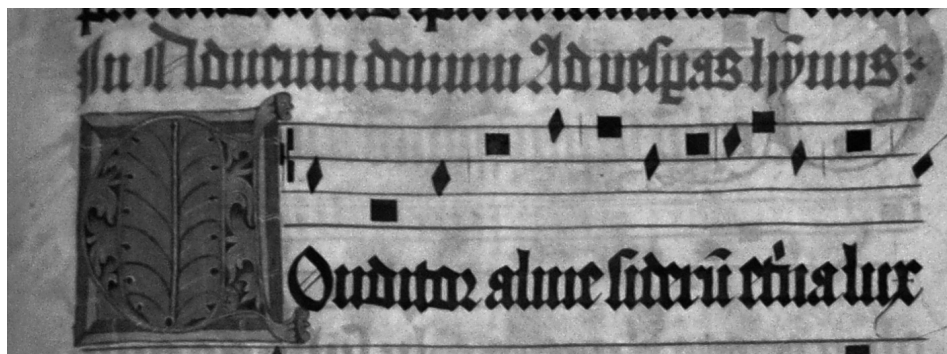 In Aduentu domini Ad uesp̲as hȳnus:
Conditor alme siderū et̓na lux